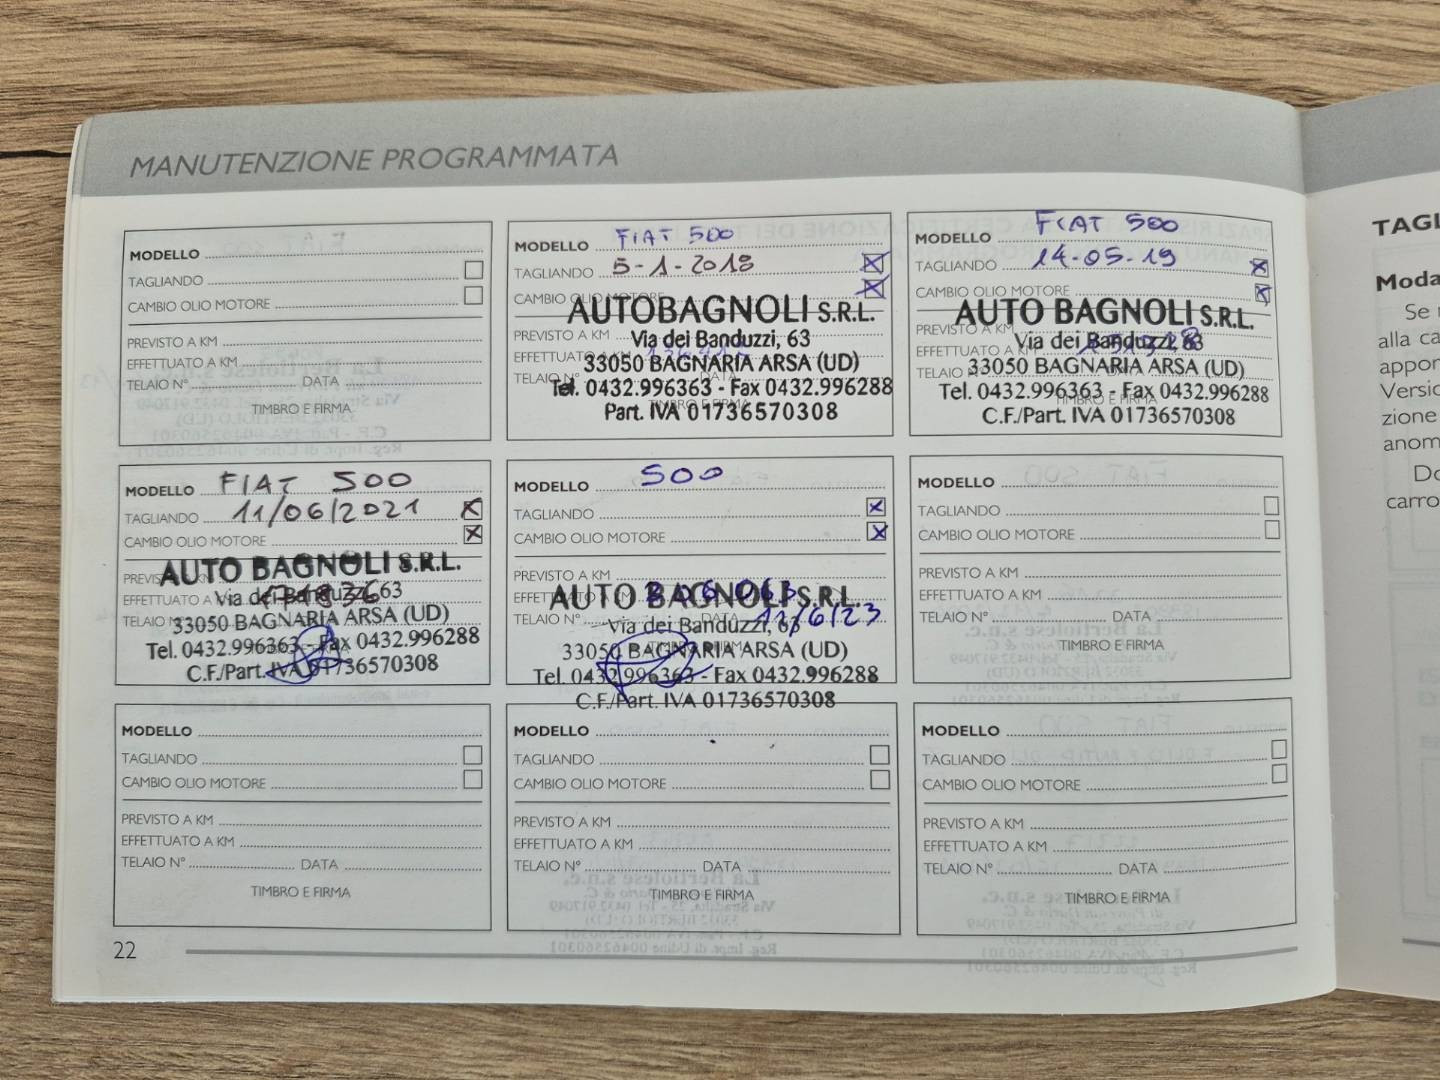 MANUTENZIONE PROGRAMMATA
MODELLO
TAGLIANDO
CAMBIO OLIO MOTORE
PREVISTO A KM
EFFETTUATO A KM
TELAIO N° DATA
TIMBRO E FIRMA
MODELLO FIAT 500
TAGLIANDO 5-1-2018
CAMBIO OLIO MOTORE
AUTOBAGNOLI S.R.L.
PREVISTO A KM
Via dei Banduzzi, 63
EFFETTUATO A KM
33050 BAGNARIA ARSA (UD)
TELAIO N° DATA
Tel. 0432.996363 - Fax 0432.996288
TIMBRO E FIRMA
Part. IVA 01736570308
MODELLO FIAT 500
TAGLIANDO 14-05-19
CAMBIO OLIO MOTORE
AUTO BAGNOLI S.R.L.
PREVISTO A KM
Via dei Banduzzi, 63
EFFETTUATO A KM
33050 BAGNARIA ARSA (UD)
TELAIO N°
Tel. 0432.996363 - Fax 0432.996288
TIMBRO E FIRMA
C.F./Part. IVA 01736570308
MODELLO FIAT 500
TAGLIANDO 11/06/2021
CAMBIO OLIO MOTORE
AUTO BAGNOLI S.R.L.
Via dei Banduzzi, 63
EFFETTUATO A
33050 BAGNARIA ARSA (UD)
TELAIO N°
Tel. 0432.996363 - Fax 0432.996288
C.F./Part. IVA 01736570308
MODELLO 500
TAGLIANDO
CAMBIO OLIO MOTORE
PREVISTO A KM
AUTO BAGNOLI S.R.L.
EFFETTUATO A KM 206063
TELAIO N° DATA 11/6/23
Via dei Banduzzi, 63
33050 BAGNARIA ARSA (UD)
Tel. 0432.996363 - Fax 0432.996288
C.F./Part. IVA 01736570308
MODELLO
TAGLIANDO
CAMBIO OLIO MOTORE
PREVISTO A KM
EFFETTUATO A KM
TELAIO N° DATA
TIMBRO E FIRMA
MODELLO
TAGLIANDO
CAMBIO OLIO MOTORE
PREVISTO A KM
EFFETTUATO A KM
TELAIO N° DATA
TIMBRO E FIRMA
MODELLO
TAGLIANDO
CAMBIO OLIO MOTORE
PREVISTO A KM
EFFETTUATO A KM
TELAIO N° DATA
TIMBRO E FIRMA
MODELLO
TAGLIANDO
CAMBIO OLIO MOTORE
PREVISTO A KM
EFFETTUATO A KM
TELAIO N° DATA
TIMBRO E FIRMA
22
TAGL
Moda
Se
alla ca
appor
Versio
zione
anom
Do
carro